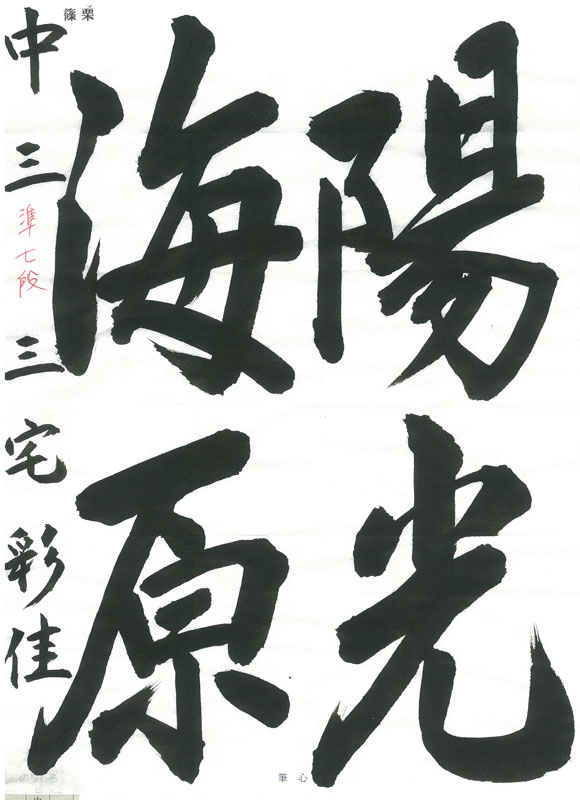 陽光
海原
篠栗
中三 準七段 三宅彩佳
心筆